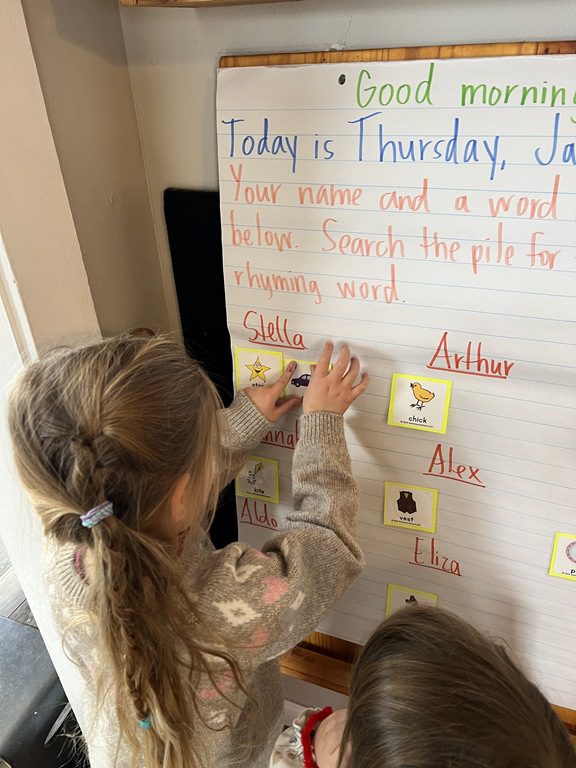 Good morning
Today is Thursday, Ja
Your name and a word
below. Search the pile for
rhyming word.
Stella
Arthur
chick
Alex
kite
vest
Aldo
Eliza